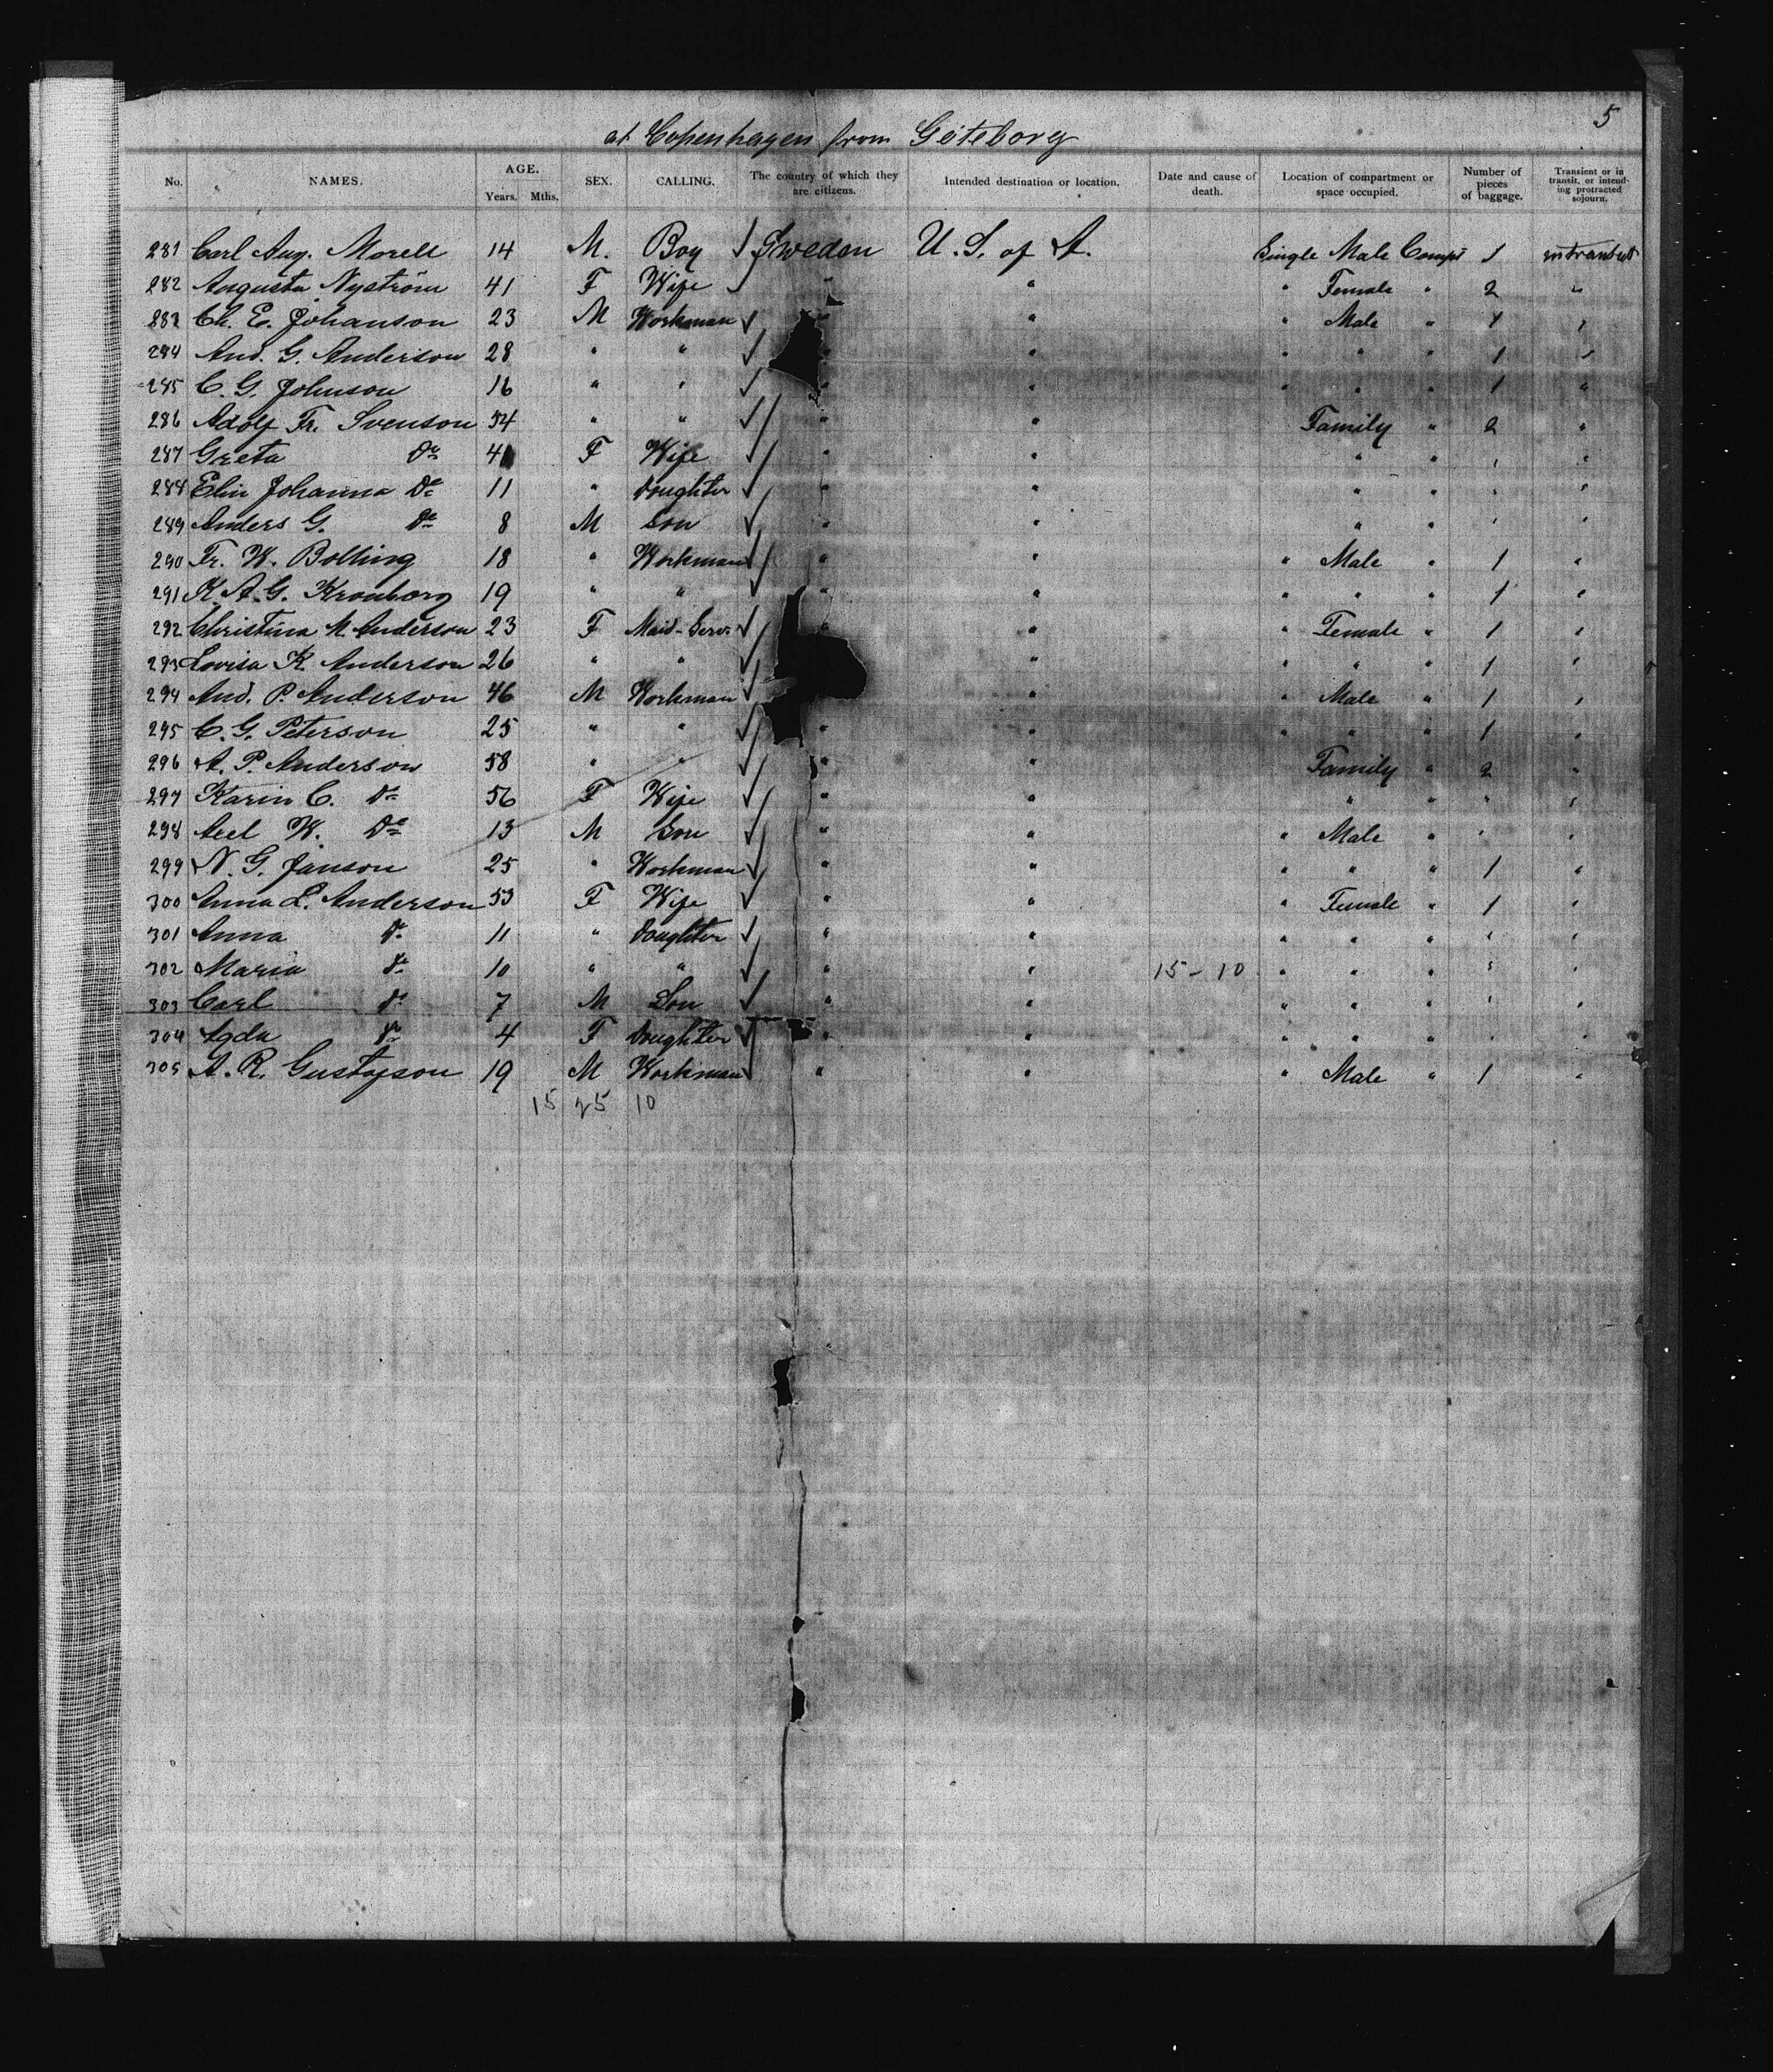 5
at Copenhagen from Göteborg
No. NAMES. AGE. Years. Mths. SEX. CALLING. The country of which they are citizens. Intended destination or location. Date and cause of death. Location of compartment or space occupied. Number of pieces of baggage. Transient or in transit, or intending protracted sojourn.
281 Carl Aug. Morell 14 M. Boy ✓ Sweden U.S. of A. Single Male Compt 1 in transit
282 Augusta Nyström 41 F Wife " " " Female " 2 "
283 Ch. E. Johanson 23 M Workman ✓ " " " Male " 1 "
284 And. G. Anderson 28 " " ✓ " " " " " 1 "
285 C. G. Johnson 16 " " ✓ " " " " " 1 "
286 Adolf Fr. Svenson 34 " " ✓ " " Family " 2 "
287 Greta Do F Wife ✓ " " " " " "
288 Elin Johanna Do 11 " Doughter ✓ " " " " " "
289 Anders G. Do 8 M Son ✓ " " " " " "
290 Fr. W. Bolling 18 " Workman ✓ " " " Male " 1 "
291 K. A. G. Kronborg 19 " " ✓ " " " " " 1 "
292 Christina M. Anderson 23 F Maid-Serv. ✓ " " " Female " 1 "
293 Lovisa K. Anderson 26 " " ✓ " " " " 1 "
294 And. P. Anderson 46 M Workman ✓ " " Male " 1 "
295 C. G. Peterson 25 " " ✓ " " " " " 1 "
296 A. P. Anderson 58 " " ✓ " " Family " 2 "
297 Karin C. Do 56 F Wife ✓ " " " " " "
298 Axel W. Do 13 M Son ✓ " " " Male " " "
299 N. G. Janson 25 " Workman ✓ " " " " " 1 "
300 Anna L. Anderson 53 F Wife ✓ " " " Female " 1 "
301 Anna Do 11 " Doughter ✓ " " " " " " "
302 Maria Do 10 " " ✓ " " 15-10 " " " " "
303 Carl Do 7 M Son ✓ " " " " " " "
304 Agda Do 4 F Doughter ✓ " " " " " " "
305 A. R. Gustafson 19 M Workman " " " Male " 1 "
15 25 10